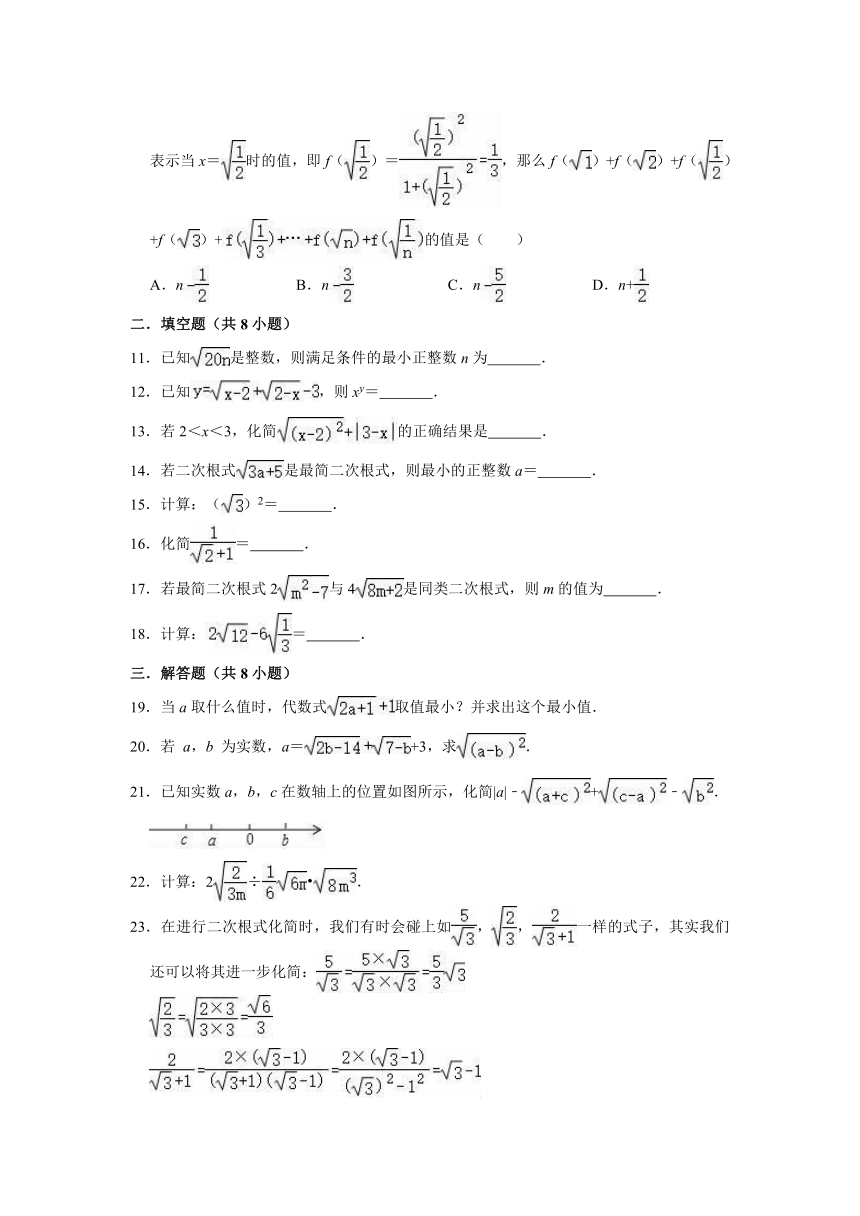 表示当 x＝√(1/2)时的值，即 f（√(1/2)）＝(√(1/2))²/(1+(√(1/2))²)=1/3，那么 f（√1）+f（√2）+f（√(1/2)）
+f（√3）+f(√(1/3))+…+f(√n)+f(√(1/n))的值是（　　）
A．n﹣1/2　B．n﹣3/2　C．n﹣5/2　D．n+1/2
二．填空题（共 8 小题）
11．已知√(20n)是整数，则满足条件的最小正整数 n 为______．
12．已知y=√(x-2)+√(2-x)-3，则 xʸ＝______．
13．若 2＜x＜3，化简√((x-2)²)+|3-x|的正确结果是______．
14．若二次根式√(3a+5)是最简二次根式，则最小的正整数 a＝______．
15．计算：（√3）²＝______．
16．化简1/(√2+1)＝______．
17．若最简二次根式 2√(m²-7)与 4√(8m+2)是同类二次根式，则 m 的值为______．
18．计算：2√12-6√(1/3)＝______．
三．解答题（共 8 小题）
19．当 a 取什么值时，代数式√(2a+1)+1取值最小？并求出这个最小值．
20．若 a，b 为实数，a＝√(2b-14)+√(7-b)+3，求√((a-b)²)．
21．已知实数 a，b，c 在数轴上的位置如图所示，化简|a|﹣√((a+c)²)+√((c-a)²)﹣√(b²)．
c a 0 b
22．计算：2√(2/(3m))÷(1/6)√(6m)•√(8m³)．
23．在进行二次根式化简时，我们有时会碰上如5/√3，√(2/3)，2/(√3+1)一样的式子，其实我们
还可以将其进一步化简：5/√3=(5×√3)/(√3×√3)=(5/3)√3
√(2/3)=√((2×3)/(3×3))=√6/3
2/(√3+1)=(2×(√3-1))/((√3+1)(√3-1))=(2×(√3-1))/((√3)²-1²)=√3-1